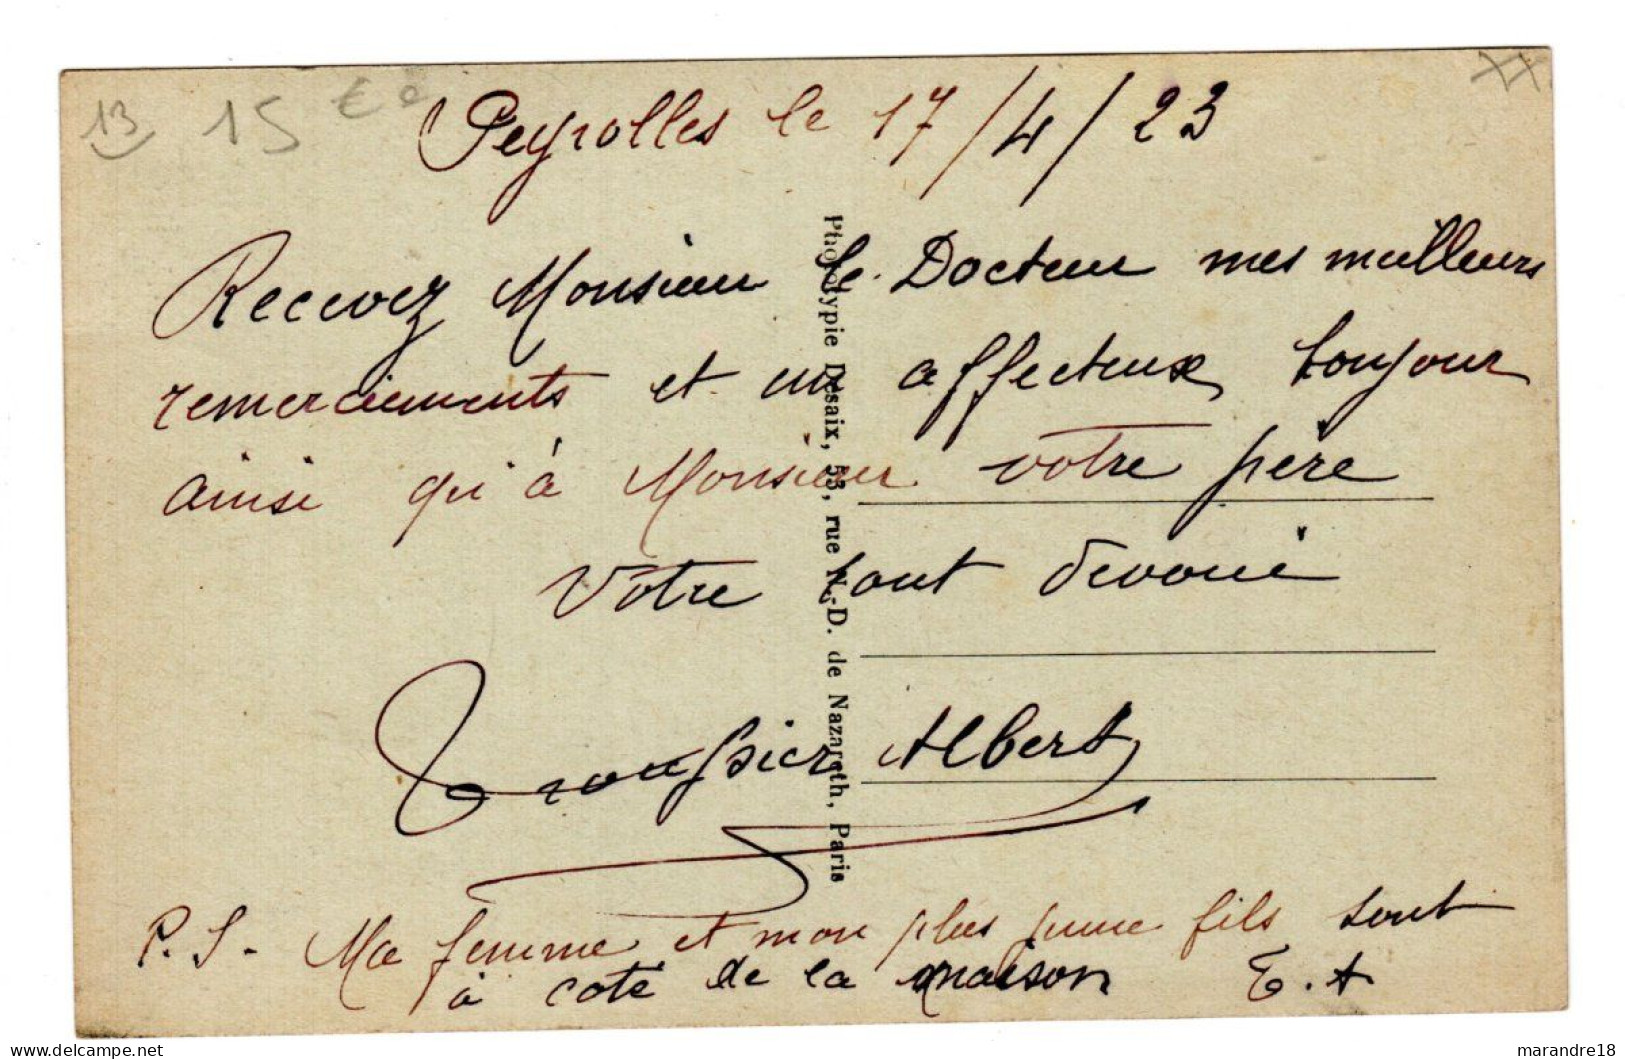 13 15 €
XX
Peyrolles le 17/4/23
Recevez Monsieur le Docteur mes meilleurs
remerciements et un affectueux toujour
ainsi qu'à Monsieur votre père
Votre tout devoué
Troupier Albert
P.S. - Ma femme et mon plus jeune fils sont
à coté de la maison T. A
Phototypie Desaix, 53, rue N.-D. de Nazareth, Paris
marandre18